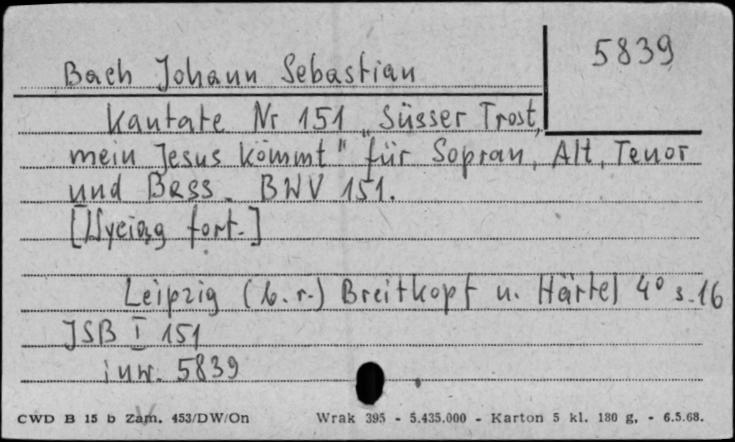 5839
Bach Johann Sebastian
Kantate Nr 151 „Süsser Trost,
mein Jesus kömmt" für Sopran, Alt, Tenor
und Bass. BWV 151.
[Wyciąg fort.]
Leipzig (b.r.) Breitkopf u. Härtel 4° s. 16
JSB I 151
inw. 5839
CWD B 15 b Zam. 453/DW/On Wrak 395 - 5.435.000 - Karton 5 kl. 180 g. - 6.5.68.